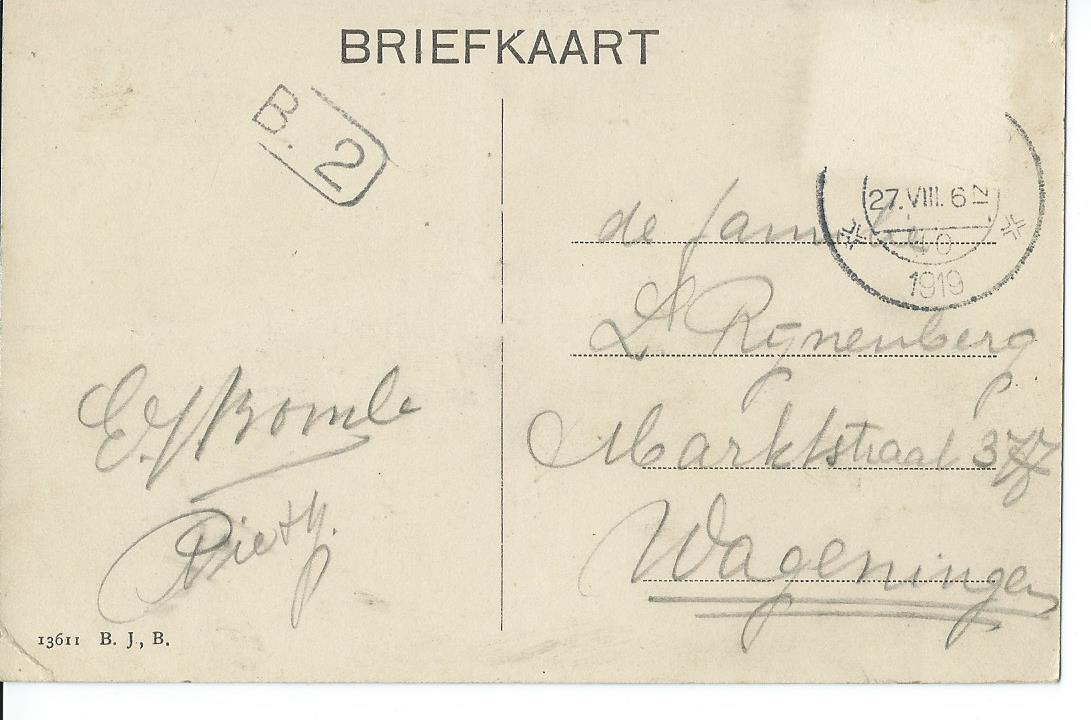 BRIEFKAART
B. 2
27.VIII. 6 N
1919
de familie
Rijnenberg
Marktstraat 377
Wageningen
Piet
13611 B. J., B.